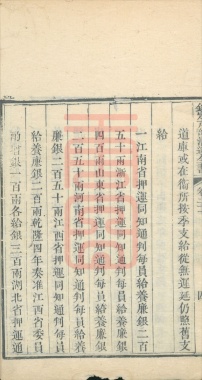 道庫或在衞所按季支給從無遲延仍照舊支
給
一江南省押運同知通判每員給養廉銀二百
五十兩浙江省押運同知通判每員給養廉銀
四百兩山東省押運同知通判每員給養廉銀
二百五十兩河南省押運同知通判每員給養
廉銀二百五十兩江西省押運同知通判每員
給養廉銀二百兩乾隆四年奏准江西省委員
銀一百兩各給銀三百兩湖北省押運通